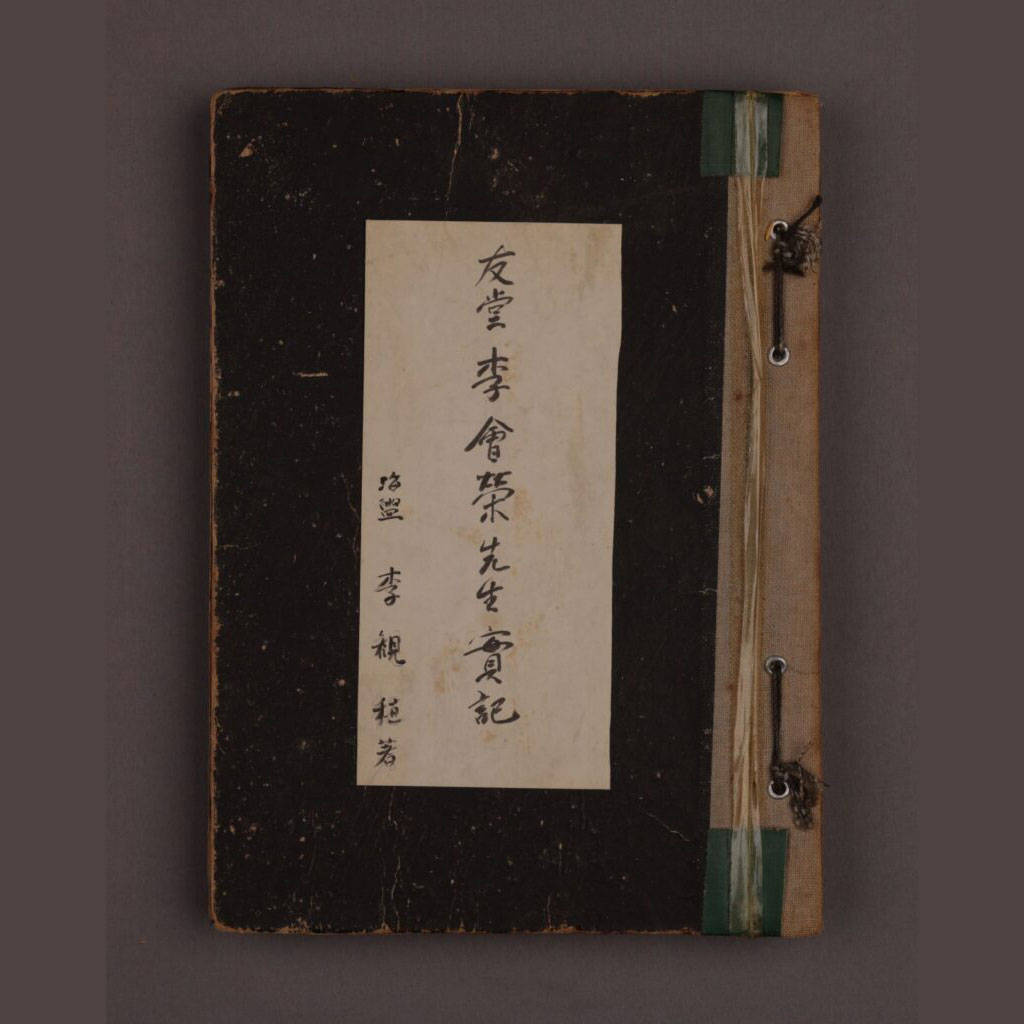 友堂 李會榮先生實記
李觀稙著